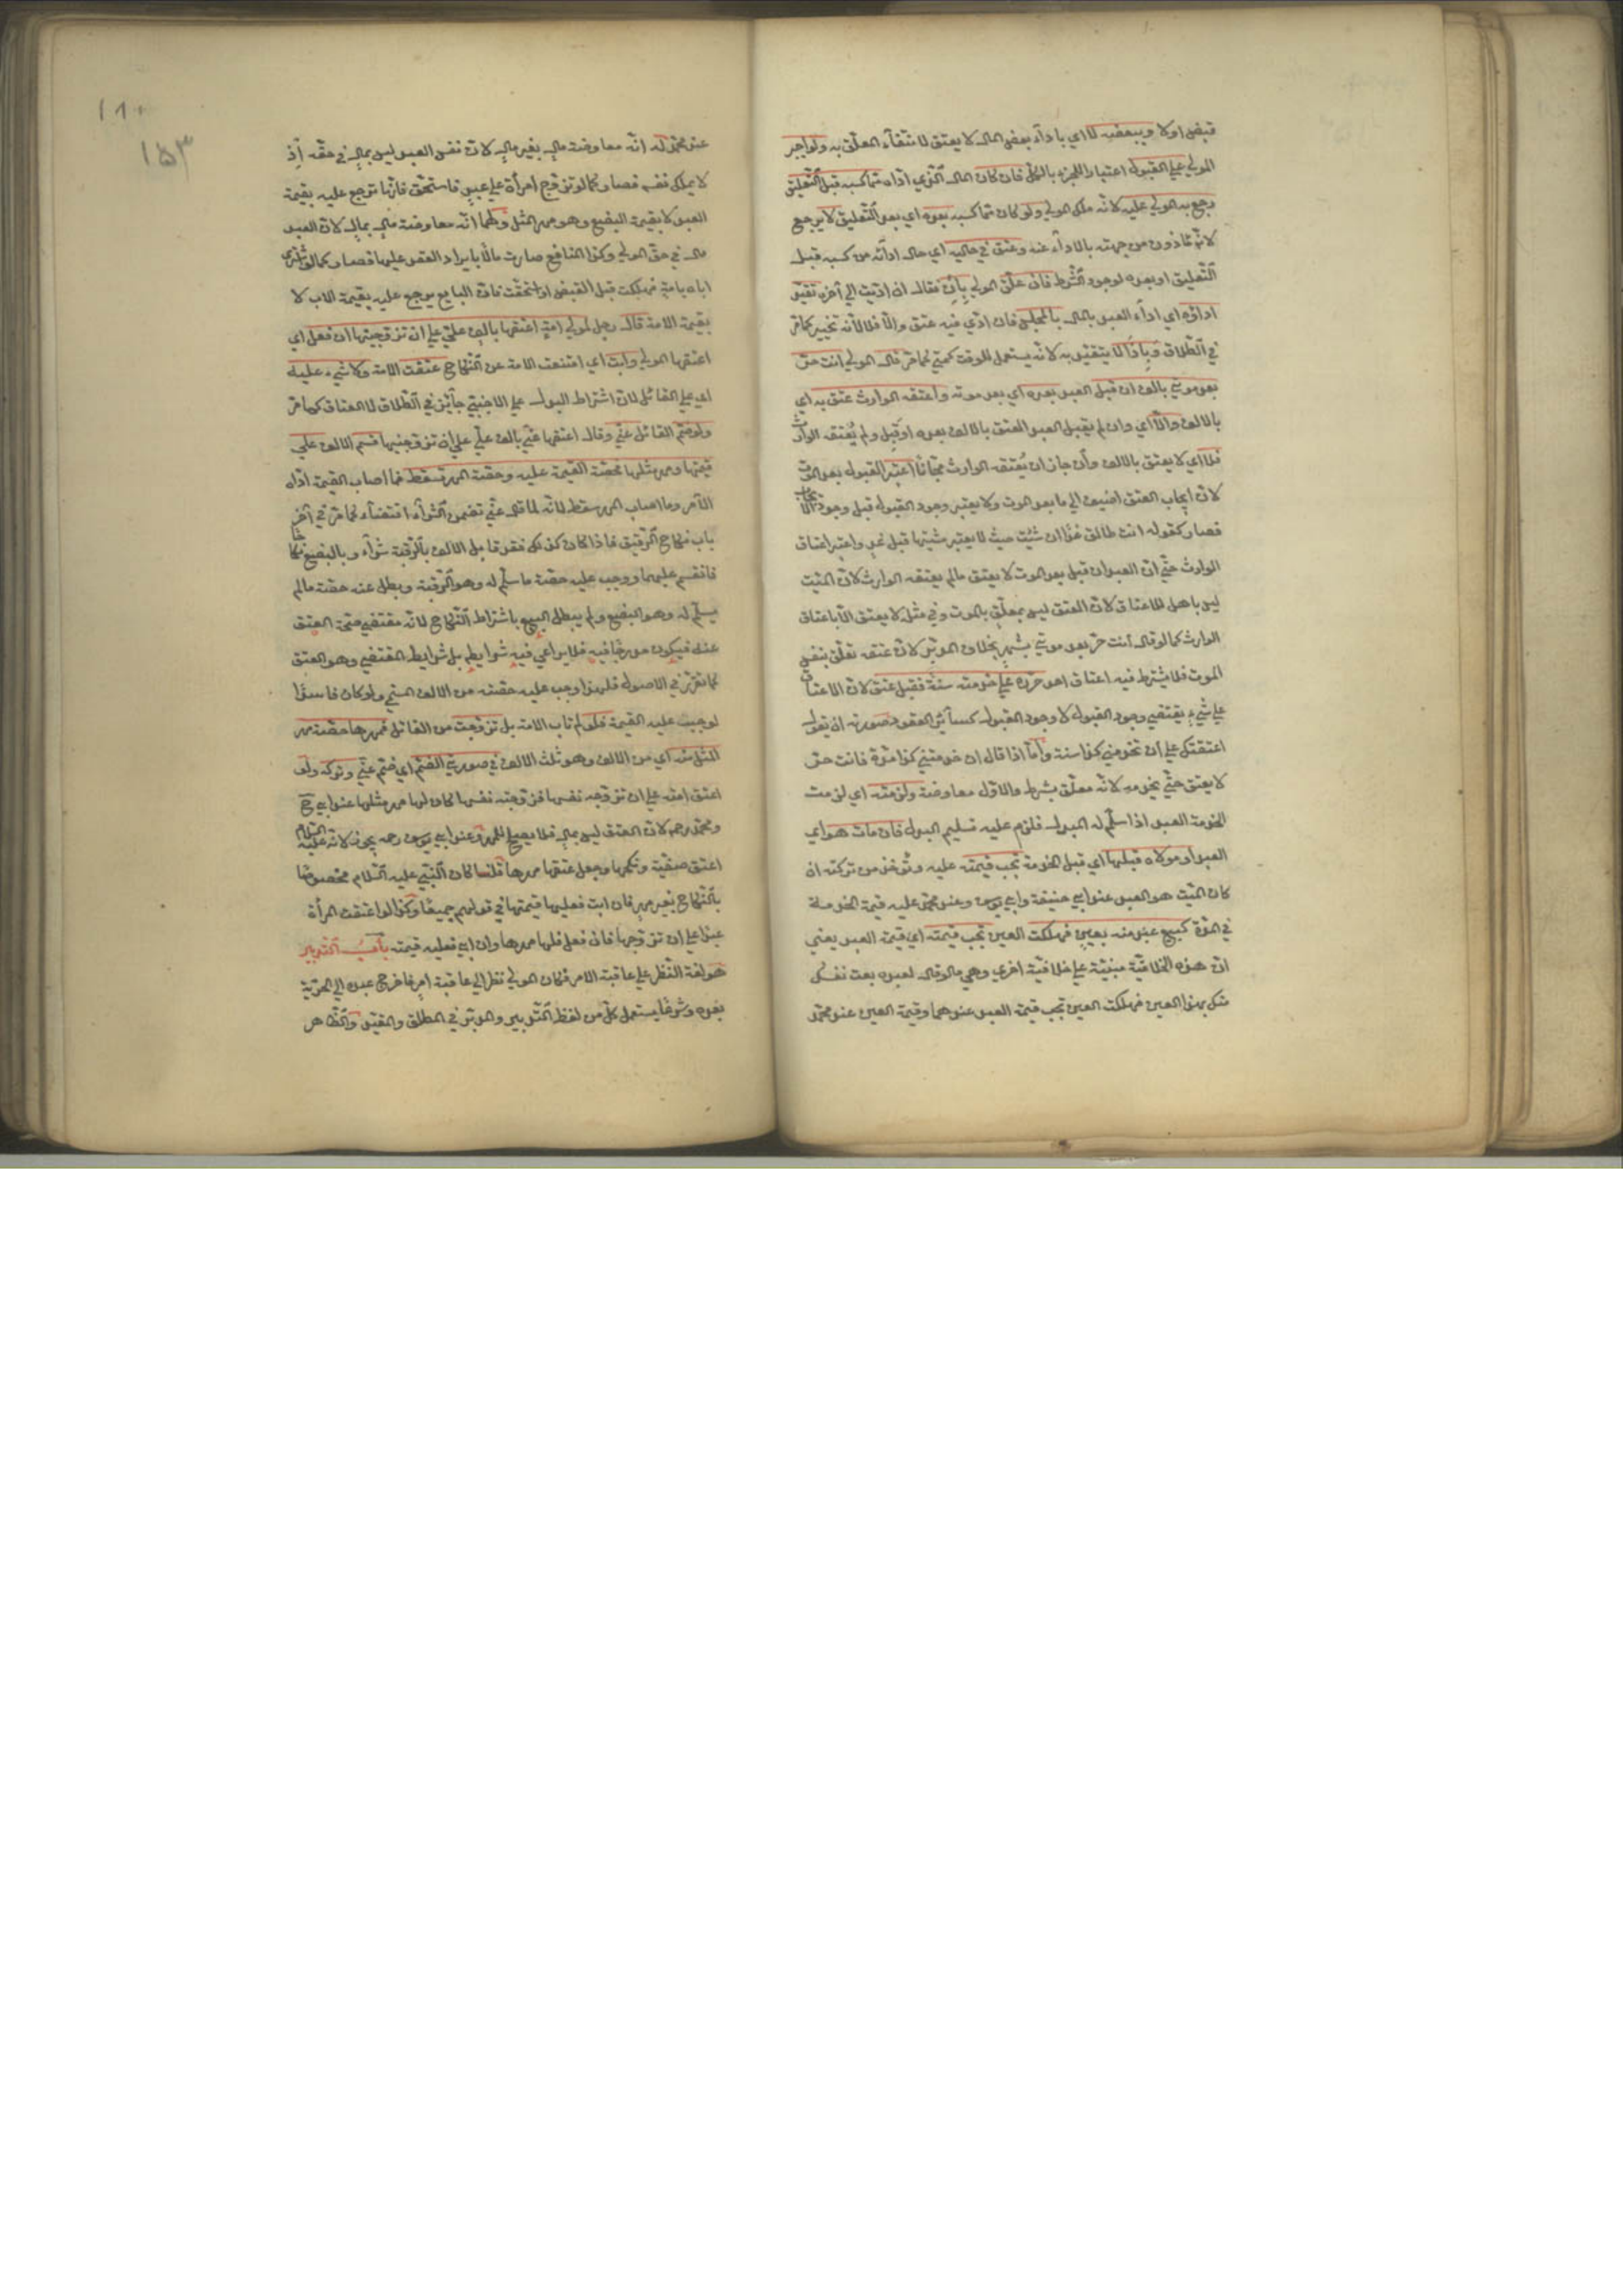 قبض اولا وببعضه لا اي باداء بعض المال لا يعتق لانتفاء المعلق به ولو اجبر
المولي علي القبول اعتبارا للجزء بالكل فان كان المال الذي اداه مما كسبه قبل التعليق
رجع به المولي عليه لانه ملك المولي ولو كان مما كسبه بعده اي بعد التعليق لا يرجع
لانه مأذون من جهته بالاداء عنه وعتق في حاليه اي حال ادائه من كسبه قبل
التعليق او بعده لوجود الشرط فان علق المولي بان فقال ان اديت الي آخره تقيد
اداؤه اي اداء العبد بالمال بالمجلس فان ادي فيه عتق والا فلا لانه تخيير كما مر
في الطلاق وباذا لا يتقيد به لانه يستعمل للوقت كمتي كما مر قال المولي انت حر
بعد موتي بالف ان قبل العبد بعده اي بعد موته واعتقه الوارث عتق به اي
بالالف والا اي وان لم يقبل العبد العتق بالالف بعده او قبل ولم يعتقه الوارث
فلا اي لا يعتق بالالف وان جاز ان يعتقه الوارث مجانا اعتبر القبول بعد الموت
لان ايجاب العتق اضيف الي ما بعد الموت ولا يعتبر وجود القبول قبل وجود الايجاب
فصار كقوله انت طالق غدا ان شئت حيث لا يعتبر مشيتها قبل غد واعتبر اعتاق
الوارث حتي ان العبد وان قبل بعد الموت لا يعتق ما لم يعتقه الوارث لان الميت
ليس باهل للاعتاق لان العتق ليس بمعلق بالموت وفي مثله لا يعتق الا باعتاق
الوارث كما لو قال انت حر بعد موتي بشهر بخلاف المدبر لان عتقه تعلق بنفس
الموت فلا يشترط فيه اعتاق احد حرره علي خدمته سنة فقبل عتق لان الاعتاق
علي شيء يقتضي وجود القبول لا وجود المقبول كسائر العقود صورته ان يقول
اعتقتك علي ان تخدمني كذا سنة واما اذا قال ان خدمتني كذا مدة فانت حر
لا يعتق حتي يخدمه لانه معلق بشرط والاول معاوضة ولزمته اي لزمت
الخدمة العبد اذا سلم له المبدل فلزم عليه تسليم البدل فان مات هو اي
العبد او مولاه قبلها اي قبل الخدمة تجب قيمته عليه وتؤخذ من تركته ان
كان الميت هو العبد عند ابي حنيفة وابي يوسف وعند محمد عليه قيمة الخدمة
في المدة كبيع عبد منه بعين فهلكت العين تجب قيمته اي قيمة العبد يعني
ان هذه الخلافية مبنية علي خلافية اخري وهي ما لو قال لعبده بعت نفسك
منك بهذا العين فهلكت العين تجب قيمة العبد عندهما وقيمة العين عند محمد
١٨٠
١٥٣
عند محمد له انه معاوضة مال بغير مال لان نفس العبد ليس بمال في حقه اذ
لا يملك نفسه فصار كما لو تزوج امرأة علي عبد فاستحق فانها ترجع عليه بقيمة
العبد لا بقيمة البضع وهو مهر المثل ولهما انه معاوضة مال بمال لان العبد
مال في حق المولي وكذا المنافع صارت مالا بايراد العقد عليها فصار كما لو اشتري
اباه بامة فهلكت قبل القبض او استحقت فان البايع يرجع عليه بقيمة الاب لا
بقيمة الامة قال رجل لمولي امة اعتقها بالف علي علي ان تزوجنيها ان فعل اي
اعتقها المولي وابت اي امتنعت الامة عن النكاح عتقت الامة ولا شيء عليه
اي علي القائل لان اشتراط البدل علي الاجنبي جائز في الطلاق لا العتاق كما مر
ولو ضم القائل عني وقال اعتقها عني بالف علي علي ان تزوجنيها قسم الالف علي
قيمتها ومهر مثلها فحصة القيمة عليه وحصة المهر تسقط فما اصاب القيمة اداه
الآمر وما اصاب المهر سقط لانه لما قال عني تضمن الشراء اقتضاء كما مر في آخر
باب نكاح الرقيق فاذا كان كذلك فقد قابل الالف بالرقبة شراء وبالبضع نكاحا
فانقسم عليهما ووجب عليه حصة ما سلم له وهو الرقبة وبطل عنه حصة ما لم
يسلم له وهو البضع ولم يبطل البيع باشتراط النكاح لانه مقتضي صحة العتق
عنه فيكون مدرجا فيه فلا يراعي فيه شرايطه بل شرايط المقتضي وهو العتق
كما تقرر في الاصول فلهذا وجب عليه حصته من الالف المسمي ولو كان فاسدا
لوجبت عليه القيمة فلو لم تاب الامة بل تزوجت من القائل فمهرها حصة مهر
المثل منه اي من الالف وهو ثلث الالف في صورتي الضم اي ضم عني وتركه ولو
اعتق امته علي ان تزوجه نفسها فزوجته نفسها كان لها مهر مثلها عند ابي ح
ومحمد رحم لان العتق ليس بمال فلا يصلح للمهر وعند ابي يوسف رحمه يجوز لانه عليه السلام
اعتق صفية ونكحها وجعل عتقها مهرها قلنا كان النبي عليه السلام مخصوصا
بالنكاح بغير مهر فان ابت فعليها قيمتها في قولهم جميعا وكذا لو اعتقت المرأة
عبدا علي ان تزوجها فان فعل فلها مهرها وان ابي فعليه قيمته باب التدبير
هو لغة النظر علي عاقبة الامر فكان المولي نظر الي عاقبة امره فاخرج عبده الي الحرية
بعده وشرعا يستعمل كل من لفظ التدبير والمدبر في المطلق والمقيد والظاهر